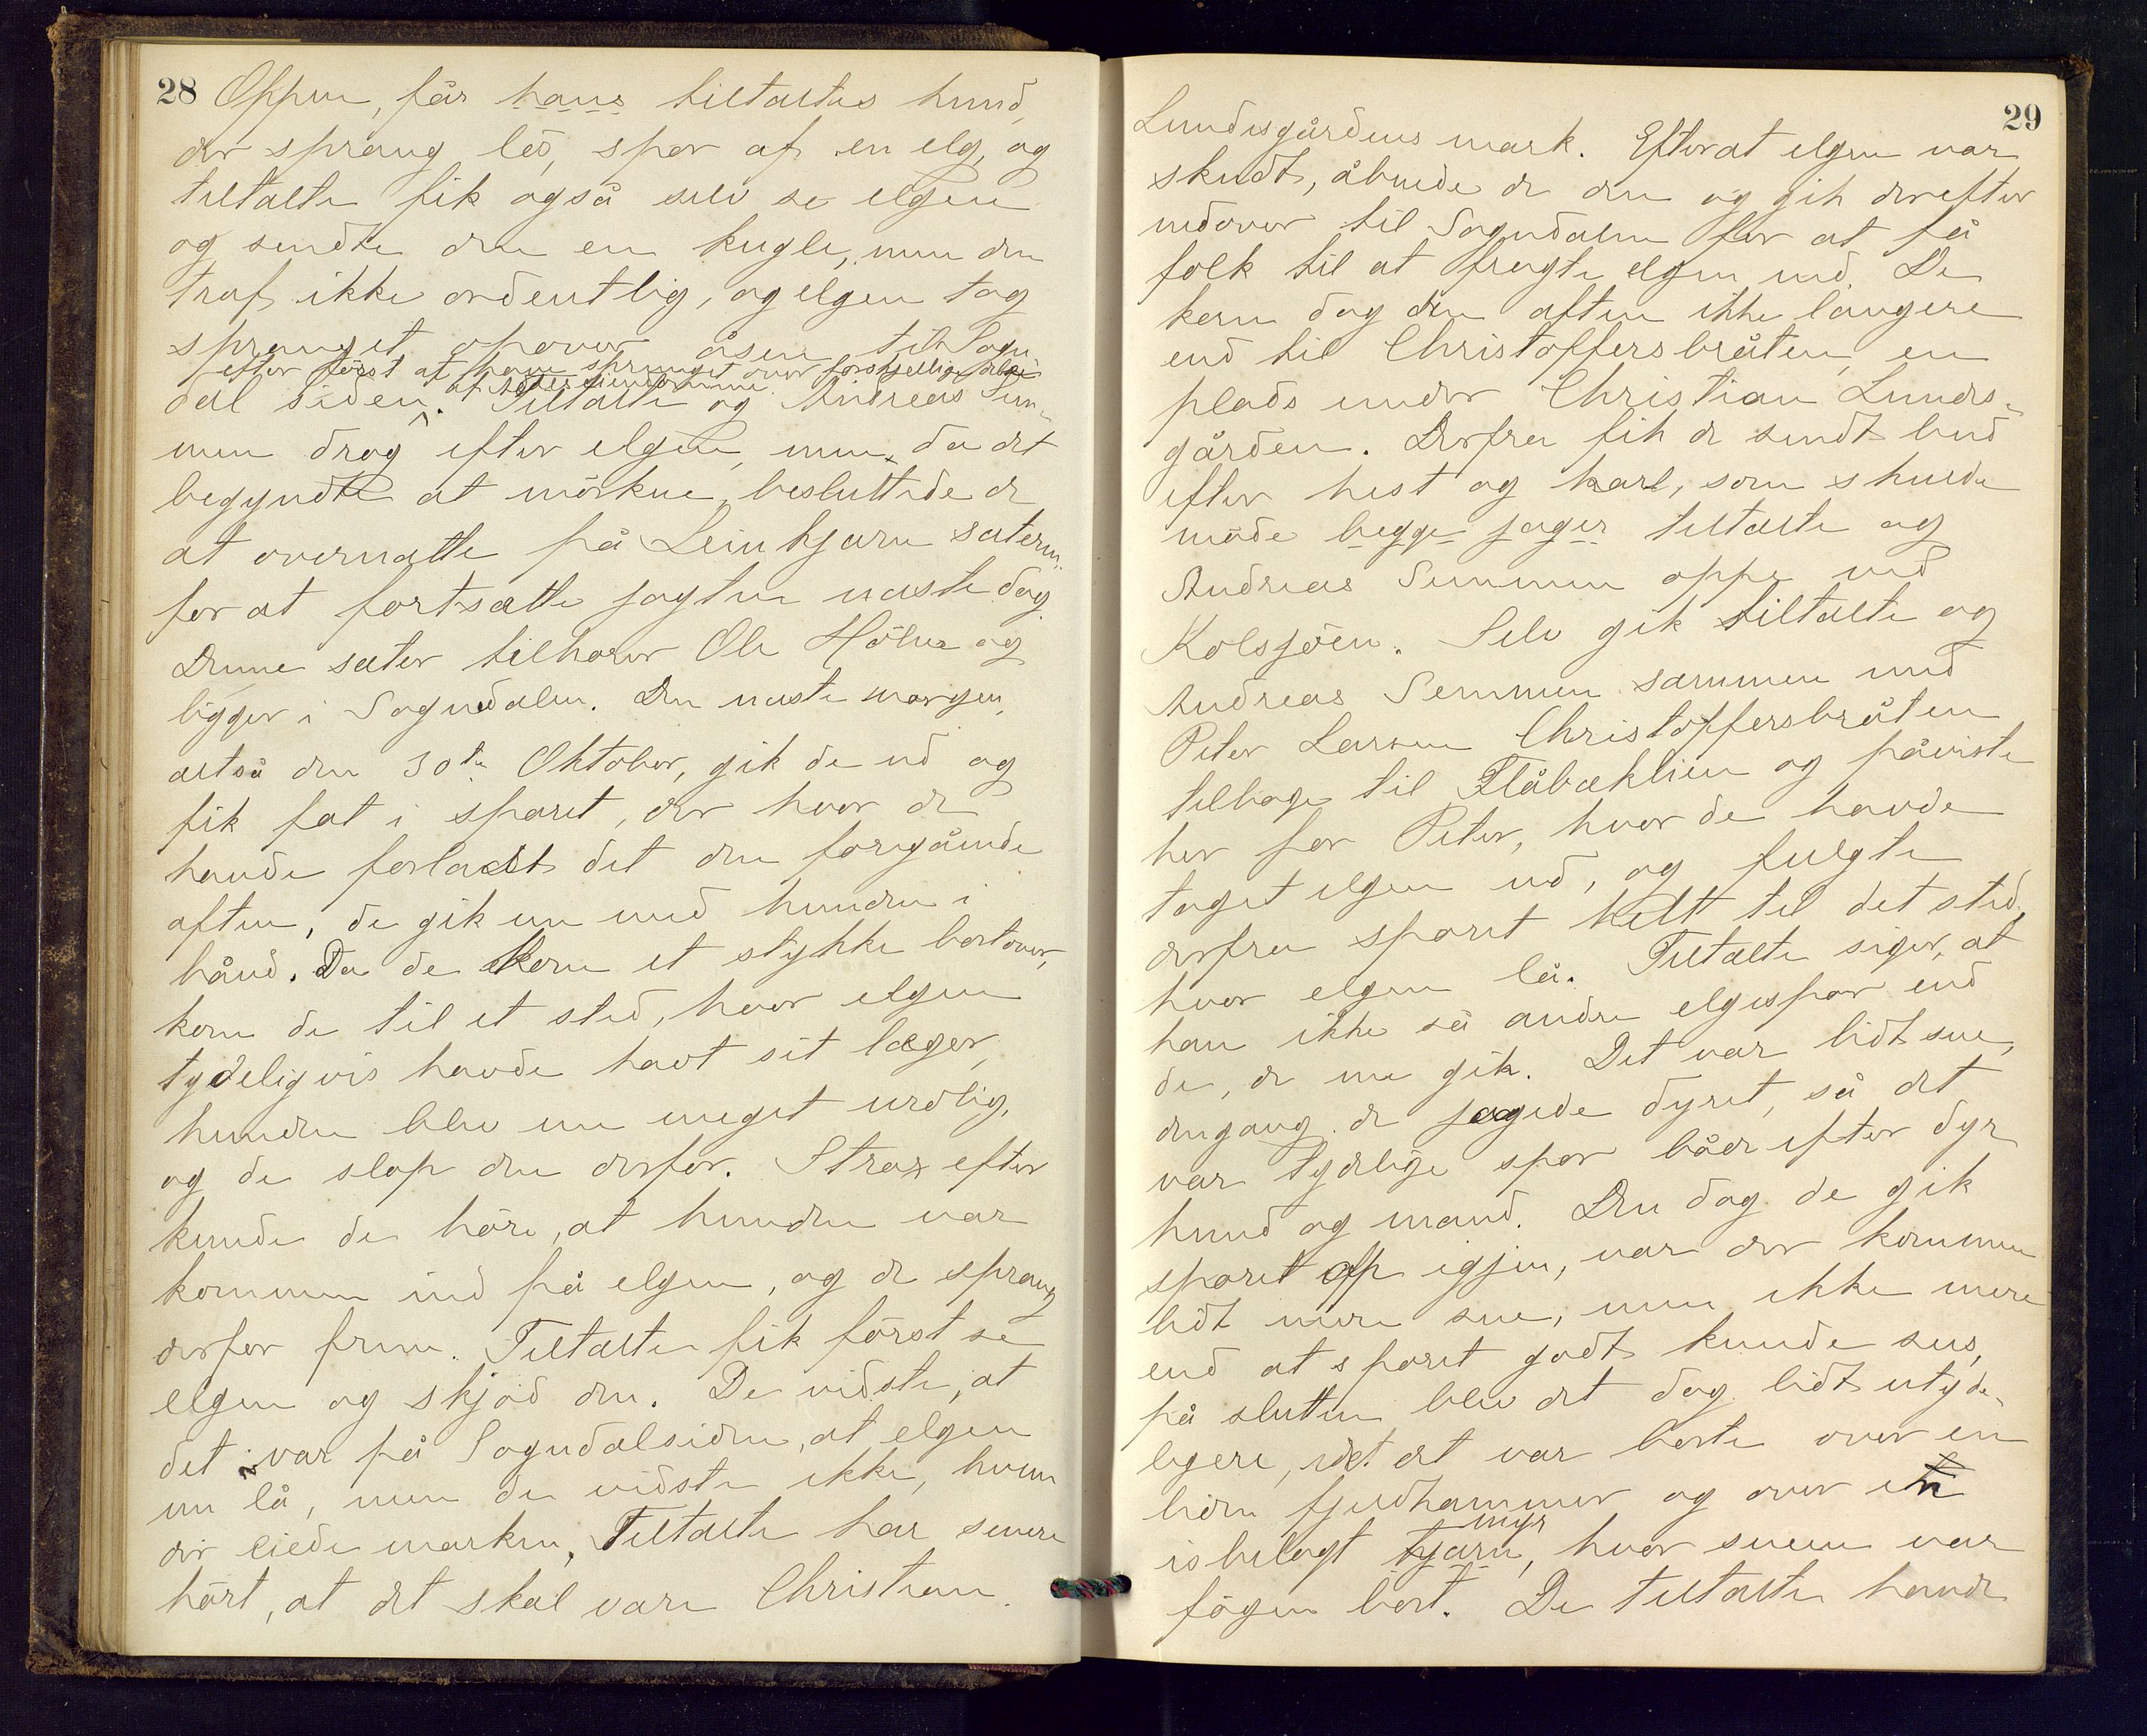 28 Oppen, får hans tiltaltes hund,
der sprang løs, spor af en elg, og
tiltalte fik også selv se elgen
og sendte den en kugle, men den
traf ikke ordentlig, og elgen tog
spranget opover åsen til Sogn-
efter først at have sprunget over forskjellige dele
af
dal siden. Tiltalte og Andreas Sem-
men drog efter elgen, men da det
begyndte at mörkne, besluttede de
at overnatte på Leinkjærn sæteren
for at fortsætte jagten næste dag.
Denne sæter tilhører Ole Hölne og
ligger i Sogndalen. Den næste morgen,
altså den 30te Oktober, gik de ud og
fik fat i sporet, der hvor de
havde forladt det den foregående
aften, de gik nu med hunden i
bånd. Da de kom et stykke bortover,
kom de til et sted, hvor elgen
tydeligvis havde havt sit læger,
hunden blev nu meget urolig,
og de slap den derfor. Strax efter
kunde de höre, at hunden var
kommen ind på elgen, og de sprang
derfor frem. Tiltalte fik först se
elgen og skjöd den. De vidste, at
det var på Sogndalsiden, at elgen
nu lå, men de vidste ikke, hvem
der eiede marken, Tiltalte har senere
hört, at det skal være Christian
29
Lundesgårdens mark. Efterat elgen var
skudt, åbnede de den og gik derefter
nedover til Sogndalen for at få
folk til at fragte elgen ned. De
kom dog den aften ikke længere
end til Christoffersbråten, en
plads under Christian Lunds-
gården. Derfra fik de sendt bud
efter hest og karl, som skulde
möde begge jager tiltalte og
Andreas Semmen oppe ved
Kolsjöen. Selv gik tiltalte og
Andreas Semmen sammen med
Peter Larsen Christoffersbråten
tilbage til Flåbæklien og påviste
her for Peter, hvor de havde
taget elgen ud, og fulgte
derfra sporet helt til det sted,
hvor elgen lå. Tiltalte siger, at
han ikke så andre elgespor end
de, de nu gik. Det var lidt sne,
dengang de jagede dyret, så det
var tydelige spor både efter dyr
hund og mand. Den dag de gik
sporet op igjen, var der kommen
lidt mere sne, men ikke mere
end at sporet godt kunde sees,
på slutten blev det dog lidt utyde-
ligere, idet det var borte over en
liden fjeldhammer og over en
myr
isbelagt tjærn, hvor sneen var
fögen bort. De tiltalte havde